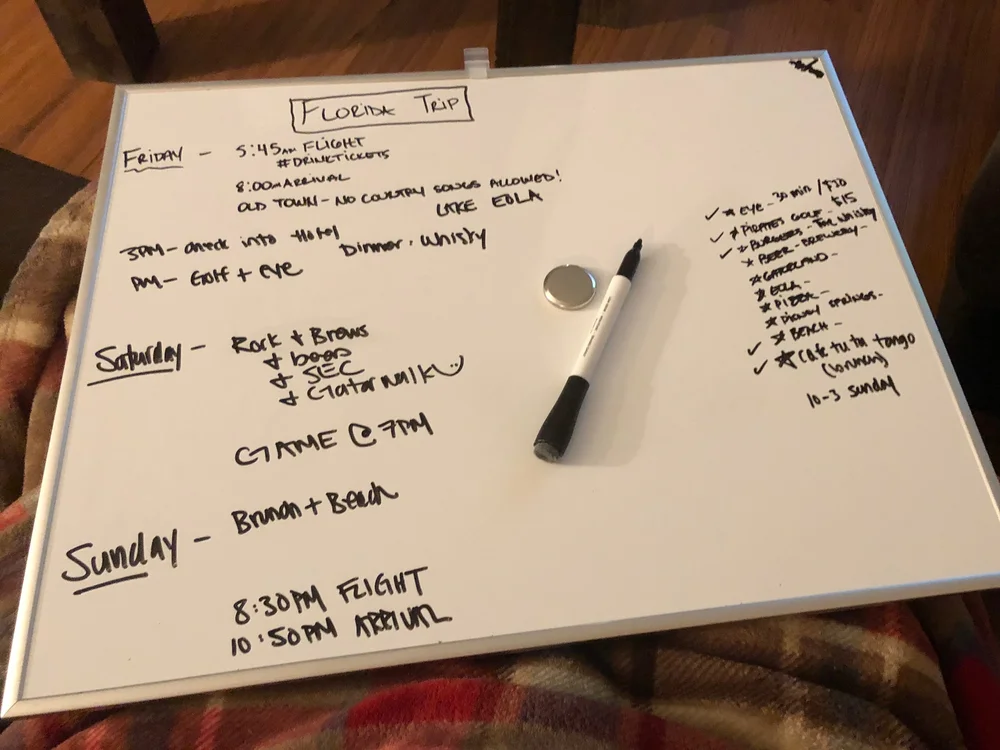 FLORIDA TRIP
FRIDAY - 5:45AM FLIGHT
#DRINKTICKETS
8:00AM ARRIVAL
OLD TOWN - NO COUNTRY SONGS ALLOWED!
LAKE EOLA
3PM - check into Hotel
Dinner. Whisky
PM - Golf + eye
Saturday - Rock + Brews
+ beers
+ SEC
+ Gatorwalk
GAME @ 7PM
Sunday - Brunch + Beach
8:30PM FLIGHT
10:50PM ARRIVAL
✓ ★ EYE - 30 min / $20
✓ ★ PIRATES GOLF - $15
✓ ★ BURGERS - whisky
★ BEER - BREWERY -
★ GATORLAND -
★ EOLA -
★ PIZZA -
★ DISNEY SPRINGS -
✓ ★ BEACH -
✓ ★ Cafe tu tu tango
(brunch)
10-3 Sunday